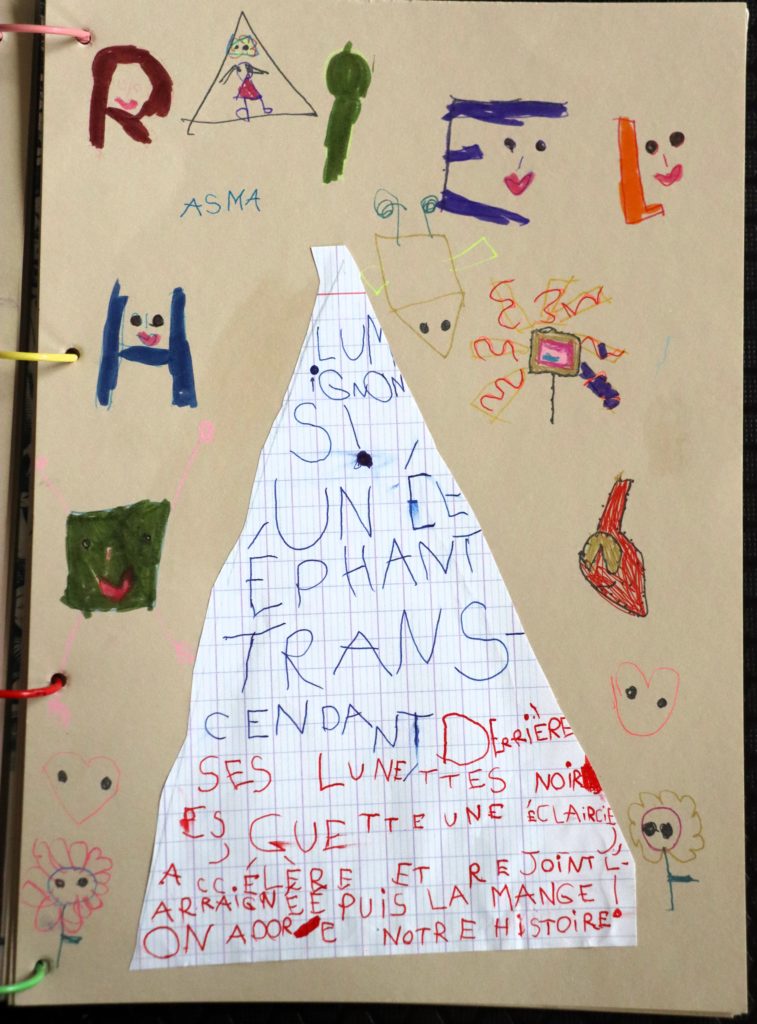 RAIEL
ASMA
H
LUM
iGNON
Si
UN ÉL
ÉPHANT
TRANS-
CENDANT DERRIÈRE
SES LUNETTES NOIR
ES GUETTE UNE ÉCLAIRCIE,
ACCÉLÈRE ET REJOINT L-
ARRAIGNÉE PUIS LA MANGE !
ON ADORE NOTRE HISTOIRE